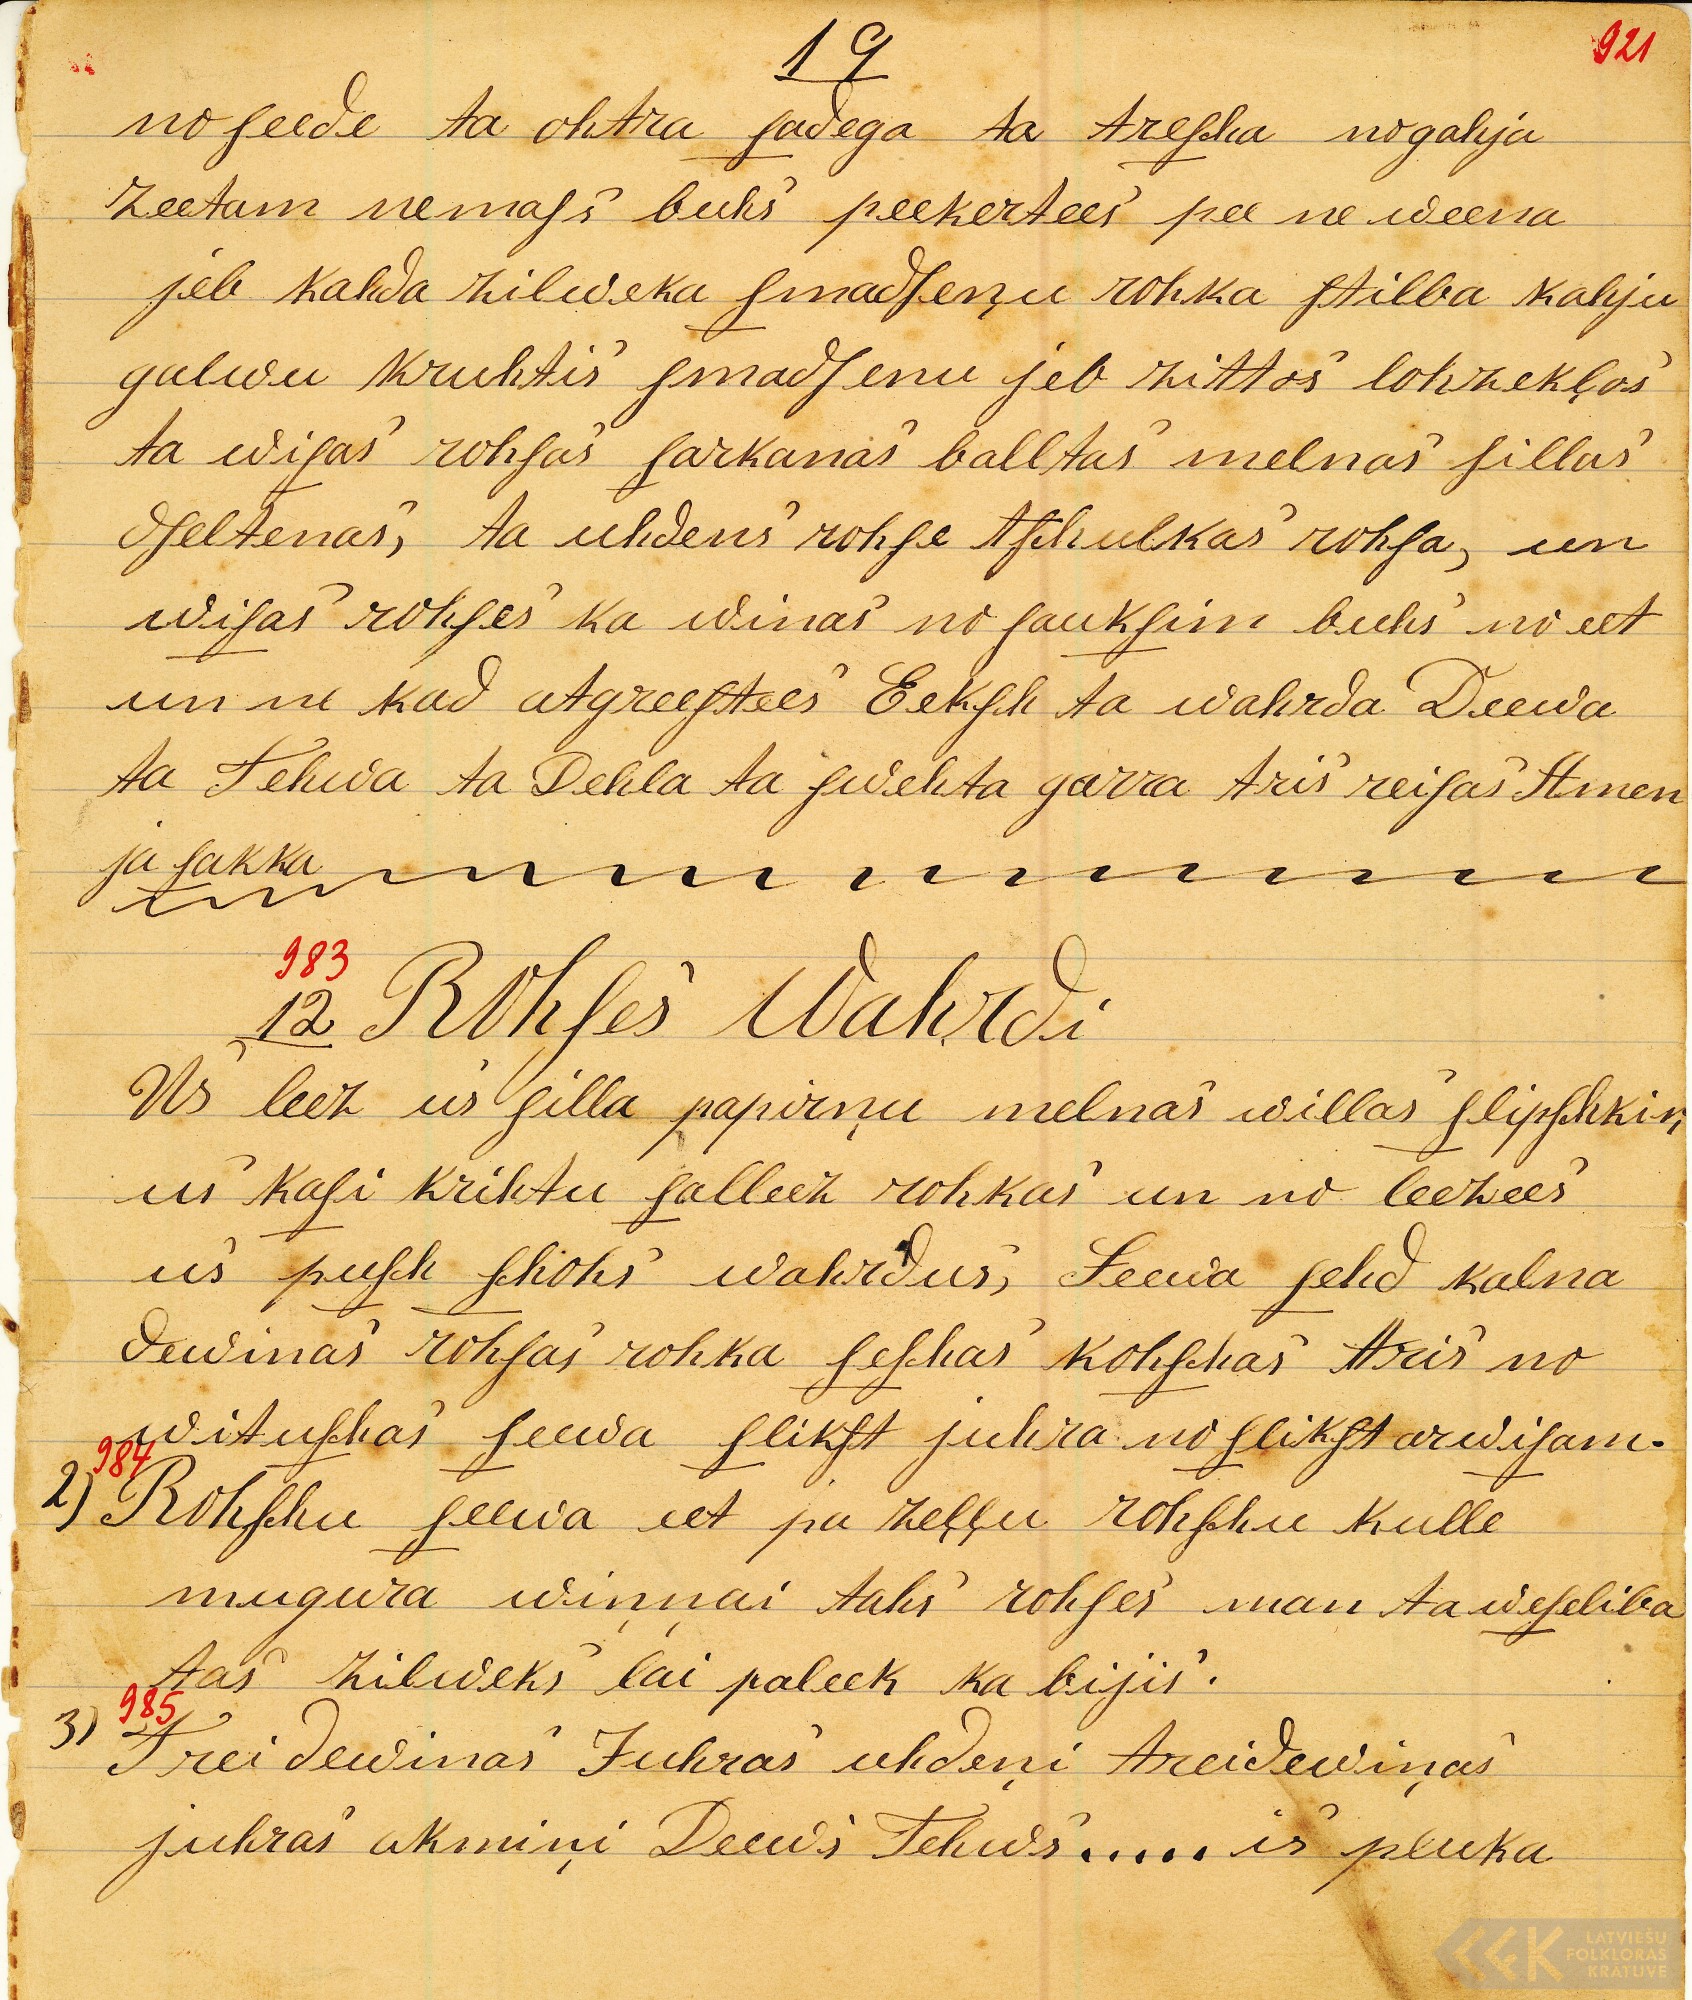 19
921
no ſeede ta ohtra ſadega ta treſcha nogahja
zeetam nemaſs buhs peekertees pee ne weena
jeb kahda zilweka ſmadſeņu rohka ſtilba kahju
galwu kruhtis ſmadſenu jeb zittos lohzekļos
ta wiſas rohſas ſarkanas balltas melnas ſillas
dſeltenas, ta uhdens rohſe tſchulkas rohſa, un
wiſas rohſes ka winas no ſaukſim buhs no eet
un ne kad atgreeſtees Eekſch ta wahrda Deewa
ta Tehwa ta Dehla ta ſwehta garra tris reiſas Amen
ja ſakka
983
12 Rohſes Wahrdi
Us leez us ſilla papirņu melnas willas ſlipſchkiņ
us kaſi krihtu ſalleez rohkas un no leezees
us puſch ſchohs wahrdus, Seewa ſehd kalna
dewinas rohſas rohka ſeſchas kohſchas tris no
wituſchas ſeewa ſlikſt juhra no ſlikſt arwiſam.
984
2) Rohſchu ſeewa eet pa zeļļu rohſchu kulle
mugura wiņņai tahs rohſes man ta weſeliba
tas zilweks lai paleek ka bijis.
985
3) Trei dewinas Juhras uhdeņi treidewiņas
juhras akmiņi Deews Tehws..... is pluka
LATVIEŠU
FOLKLORAS
KRĀTUVE